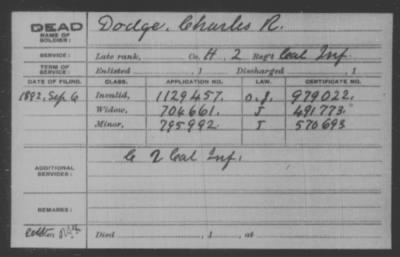 DEAD
NAME OF SOLDIER: Dodge, Charles R.
SERVICE: Late rank, Co. H 2 Reg't Cal Inf.
TERM OF SERVICE: Enlisted , 1 Discharged , 1
DATE OF FILING. CLASS. APPLICATION NO. LAW. CERTIFICATE NO.
1892, Sep 6 Invalid, 1129457. 979022.
Widow, 706661. 491773.
Minor, 795992. 570693
ADDITIONAL SERVICES: G 2 Cal Inf.
REMARKS:
Died , 1 , at